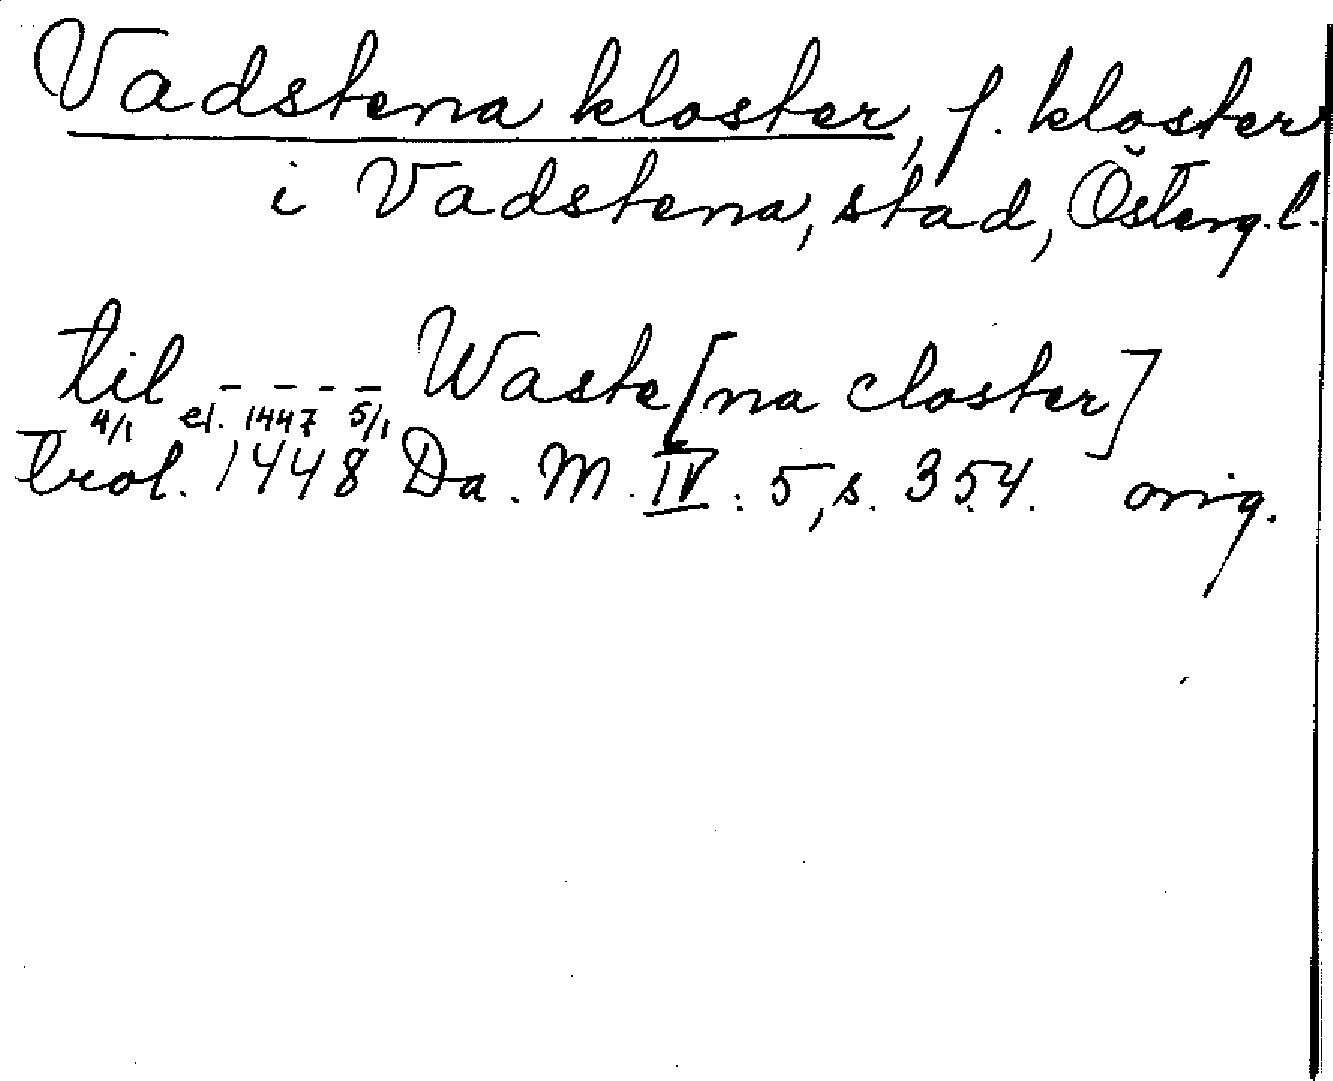 Vadstena kloster, f. kloster
i Vadstena, stad, Österg.l.
til - - - - Waste[na closter]
4/1 el. 1447 5/1
trol. 1448 Da. M. IV: 5, s. 354. orig.